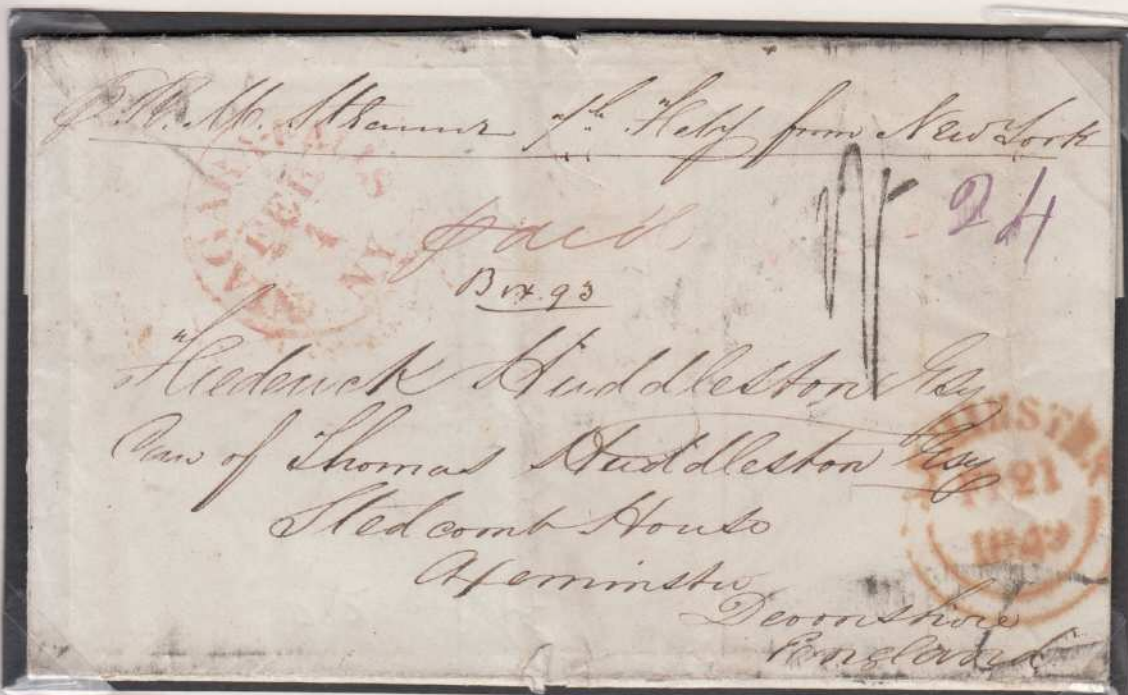 P. R. M. Steamer 7th Feby from New York
NIAGARA FALLS
FEB
1
NY
paid
24
Box 93
Frederick Huddleston Esq
Care of Thomas Huddleston Esq
Stedcomb House
Axeminster
Devonshire
England
21
1849